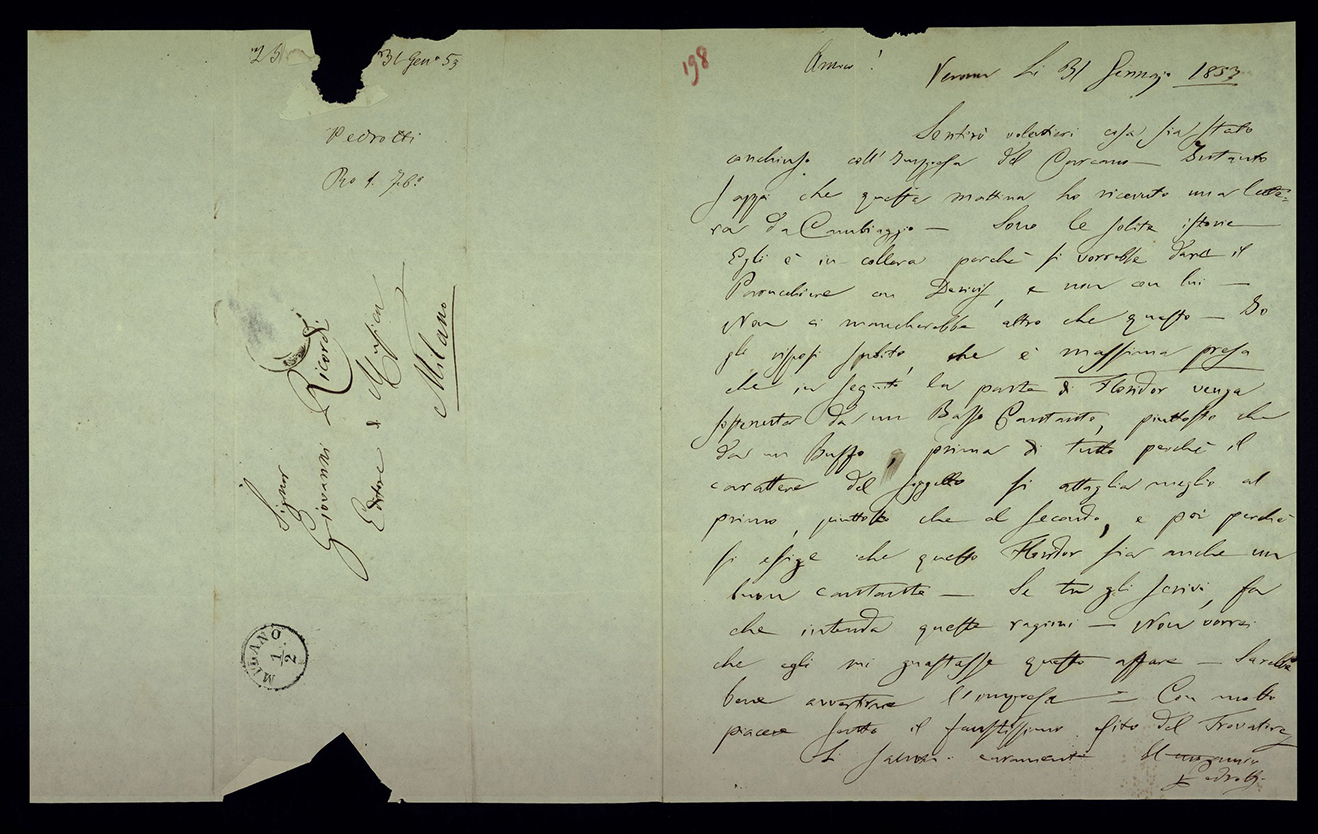 31 Gen° 53
Pedrotti
Signor
Giovanni Ricordi
Editore di Musica
Milano
MILANO
1/2
198
Amico!
Verona Li 31 Gennajo 1853
Sentirò volentieri cosa sia stato
conchiuso coll'Impresa del Carcano — Intanto
sappi che questa mattina ho ricevuto una lette-
ra da Cambiaggio — Sono le solite istorie
Egli è in collera perchè si vorrebbe dare il
Parrucchiere con Derivis, e non con lui —
Non ci mancherebbe altro che questo — Io
gli risposi subito, che è massima presa
che in seguito la parte di Flendor venga
sostenuta da un Basso Cantante, piuttosto che
da un Buffo, prima di tutto perchè il
carattere del soggetto si attaglia meglio al
primo, piuttosto che al secondo, e poi perchè
si esige che questo Flendor sia anche un
buon cantante — Se tu gli scrivi, fa
che intenda queste ragioni — Non vorrei
che egli mi guastasse questo affare — Sarebbe
bene avvertirne l'impresa — Con molto
piacere sento il faustissimo esito del Trovatore
Ti saluto caramente Il tuo amico
Pedrotti